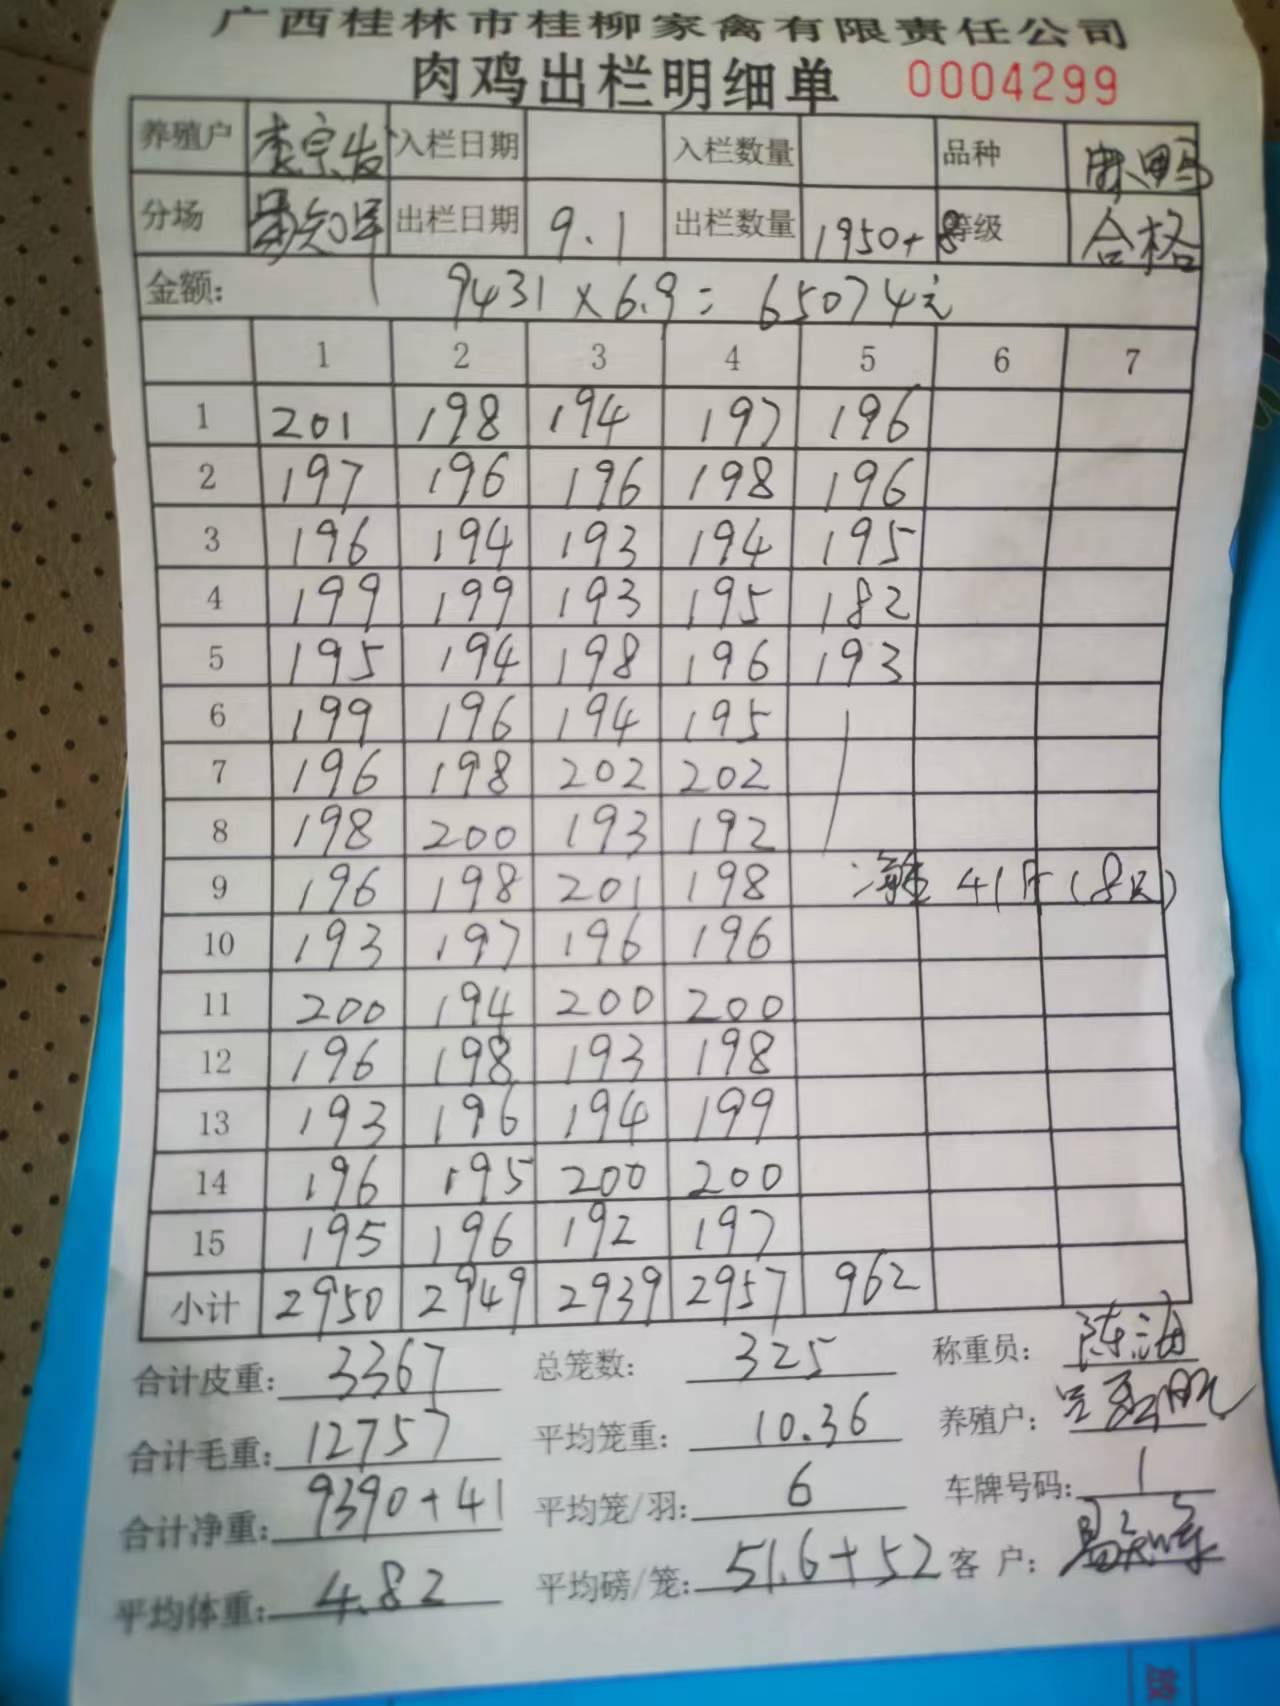 广西桂林市桂柳家禽有限责任公司
肉鸡出栏明细单 0004299
养殖户 李宗发 入栏日期 入栏数量 品种
分场 出栏日期 9.1 出栏数量 1950+8 等级 合格
金额: 9431×6.9=65074元
1 2 3 4 5 6 7
1 201 198 194 197 196
2 197 196 196 198 196
3 196 194 193 194 195
4 199 199 193 195 182
5 195 194 198 196 193
6 199 196 194 195
7 196 198 202 202
8 198 200 193 192
9 196 198 201 198 净重 41斤(8只)
10 193 197 196 196
11 200 194 200 200
12 196 198 193 198
13 193 196 194 199
14 196 195 200 200
15 195 196 192 197
小计 2950 2949 2939 2957 962
合计皮重: 3367 总笼数: 325 称重员: 陈海
合计毛重: 12757 平均笼重: 10.36 养殖户:
合计净重: 9390+41 平均笼/羽: 6 车牌号码: 1
平均体重: 4.82 平均磅/笼: 51.6+52 客户: